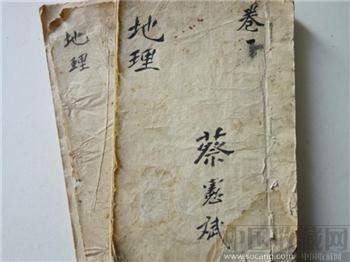 卷
地理
蔡憲斌
地理
中国收藏网
www.socang.com 中国收藏网